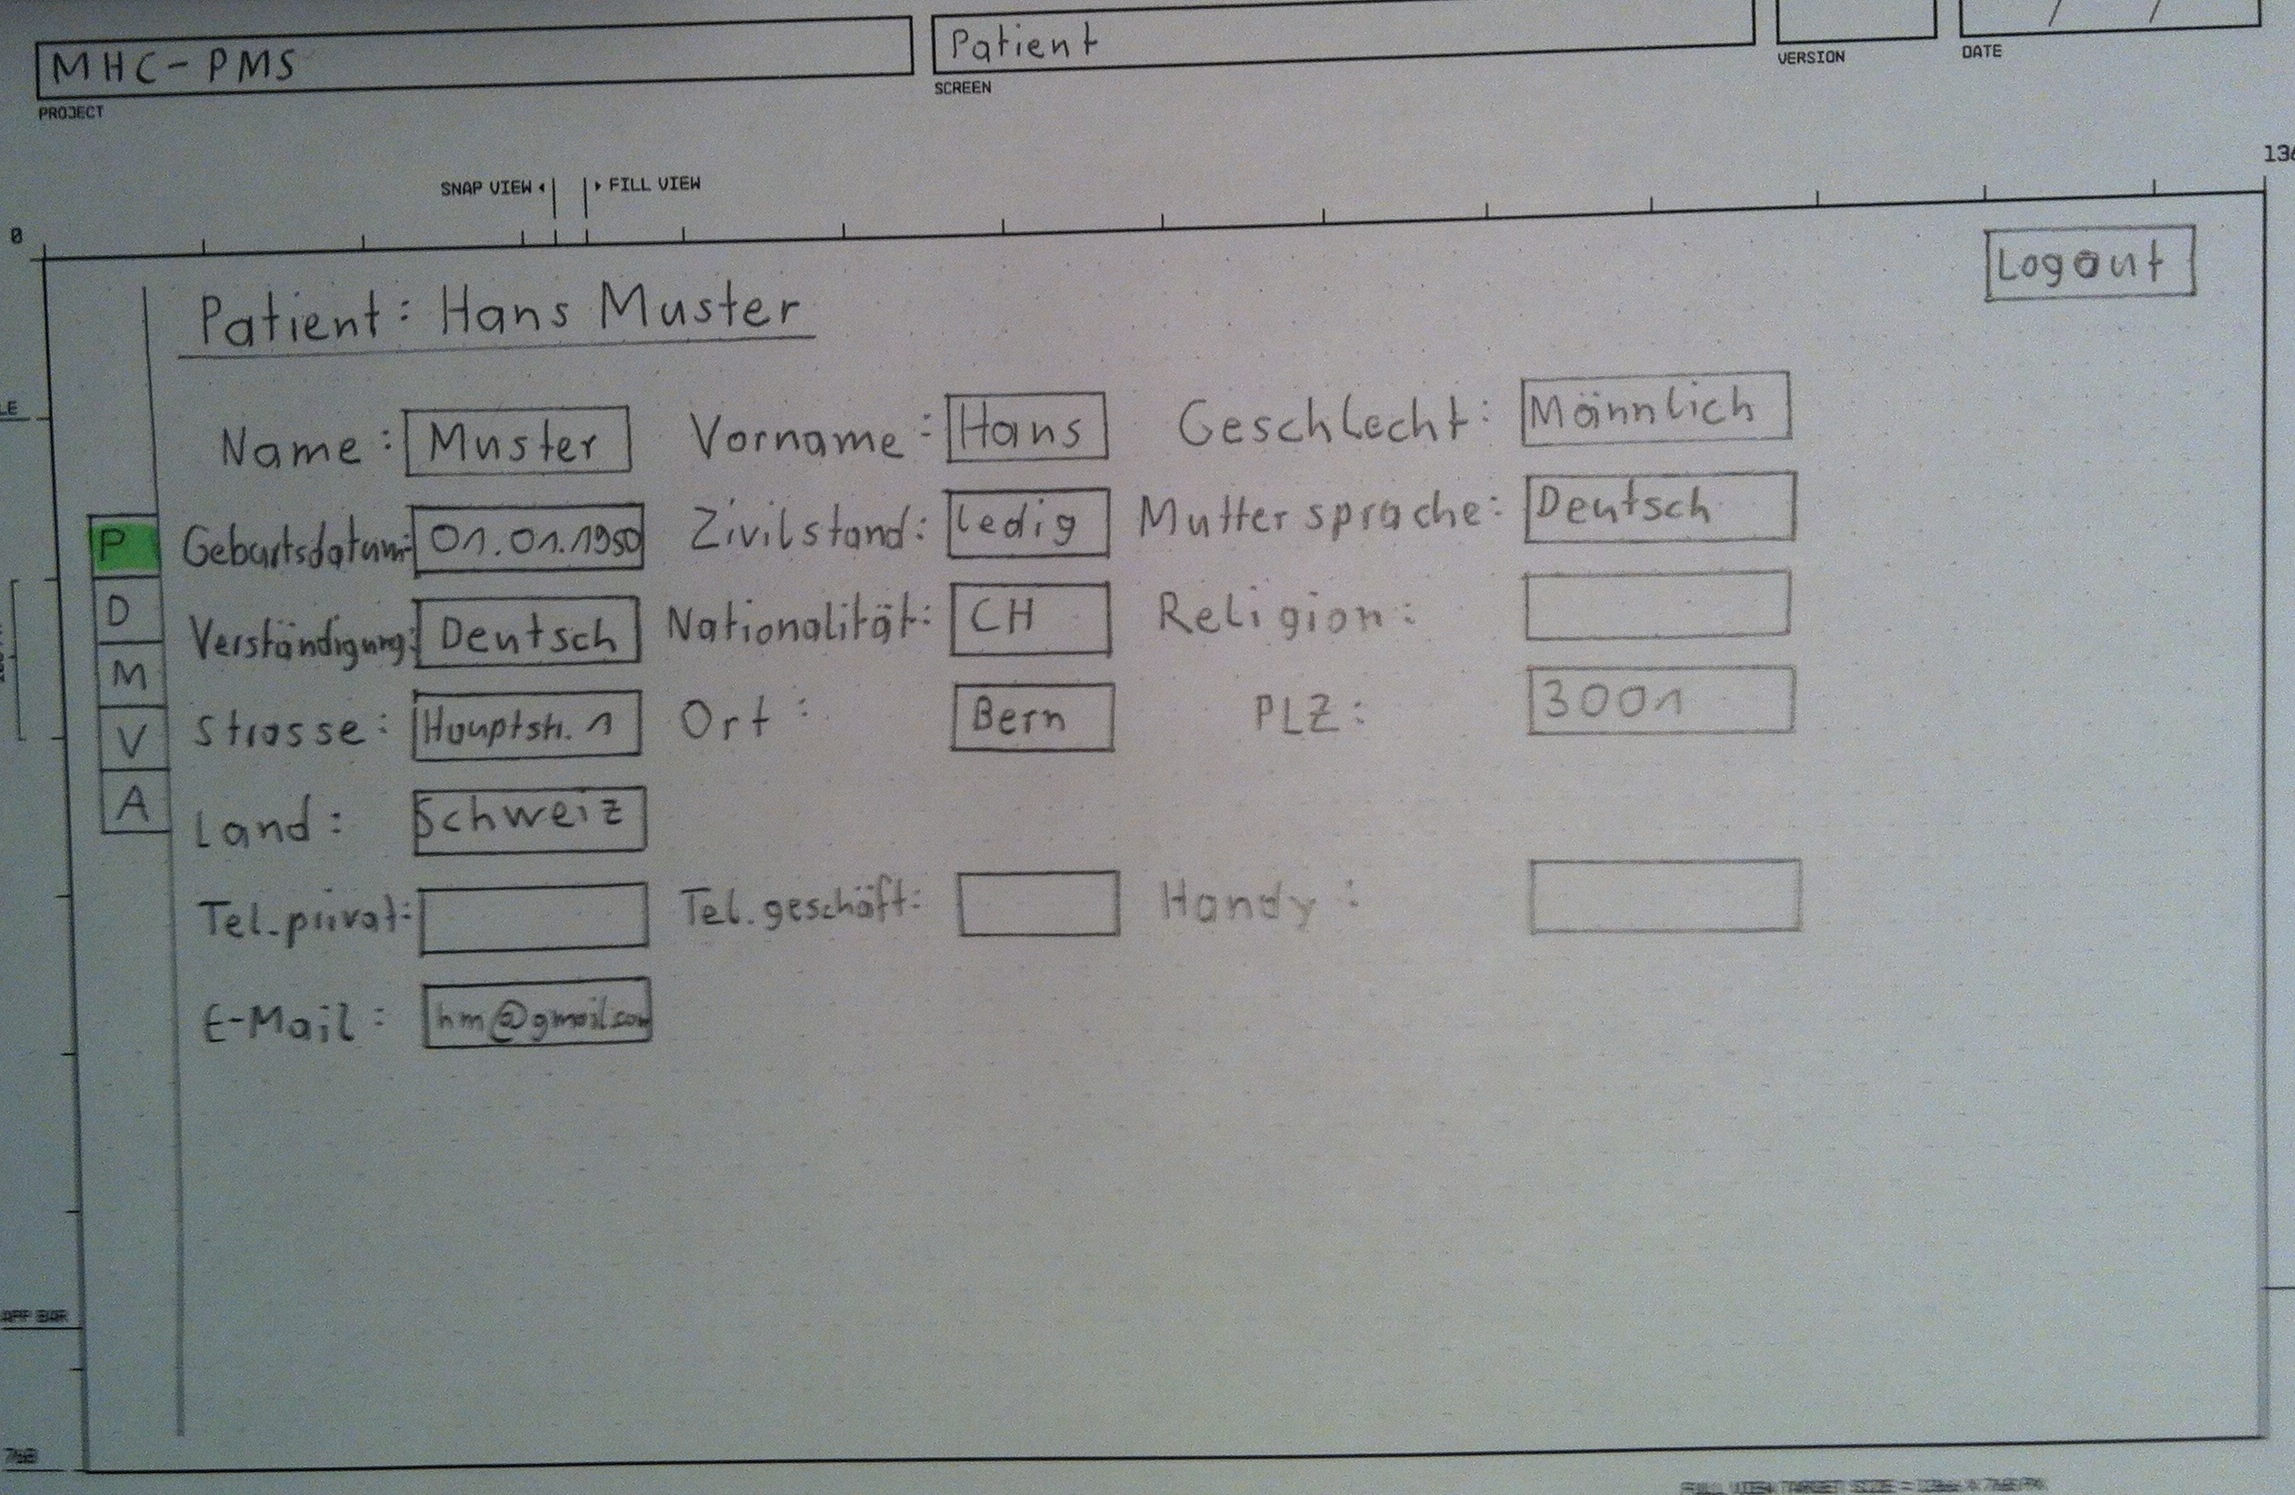 MHC-PMS
Patient
PROJECT
SCREEN
VERSION
DATE
/ /
SNAP VIEW
FILL VIEW
0
Logout
Patient: Hans Muster
Name: Muster Vorname: Hans Geschlecht: Männlich
P Geburtsdatum: 01.01.1950 Zivilstand: ledig Muttersprache: Deutsch
D Verständigung: Deutsch Nationalität: CH Religion:
M
V Strasse: Hauptstr. 1 Ort: Bern PLZ: 3001
A Land: Schweiz
Tel. privat: Tel. geschäft: Handy:
E-Mail: hm@gmail.com
APP BAR
768